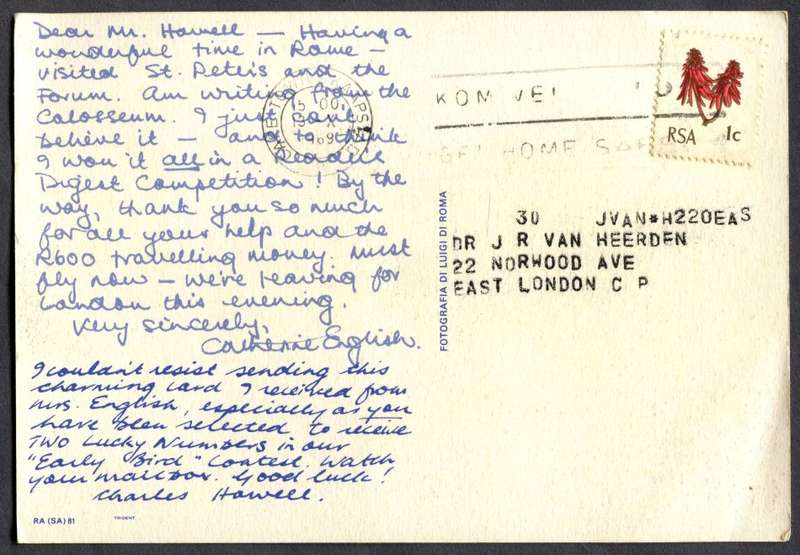 Dear Mr. Howell — Having a
wonderful time in Rome —
visited St. Peter's and the
Forum. Am writing from the
Colosseum. I just can't
believe it — and to think
I won it all in a Reader's
Digest Competition! By the
way, thank you so much
for all your help and the
R600 travelling money. Must
fly now — we're leaving for
London this evening.
Very sincerely,
Catherine English.
I couldn't resist sending this
charming card I received from
Mrs. English, especially as you
have been selected to receive
TWO Lucky Numbers in our
"Early Bird" Contest. Watch
your mailbox. Good luck!
Charles Howell.
RA (SA) 81
TRIDENT
FOTOGRAFIA DI LUIGI DI ROMA
KOM VEI
HOME SAF
RSA 1c
30 JVAN*H220EAS
DR J R VAN HEERDEN
22 NORWOOD AVE
EAST LONDON C P